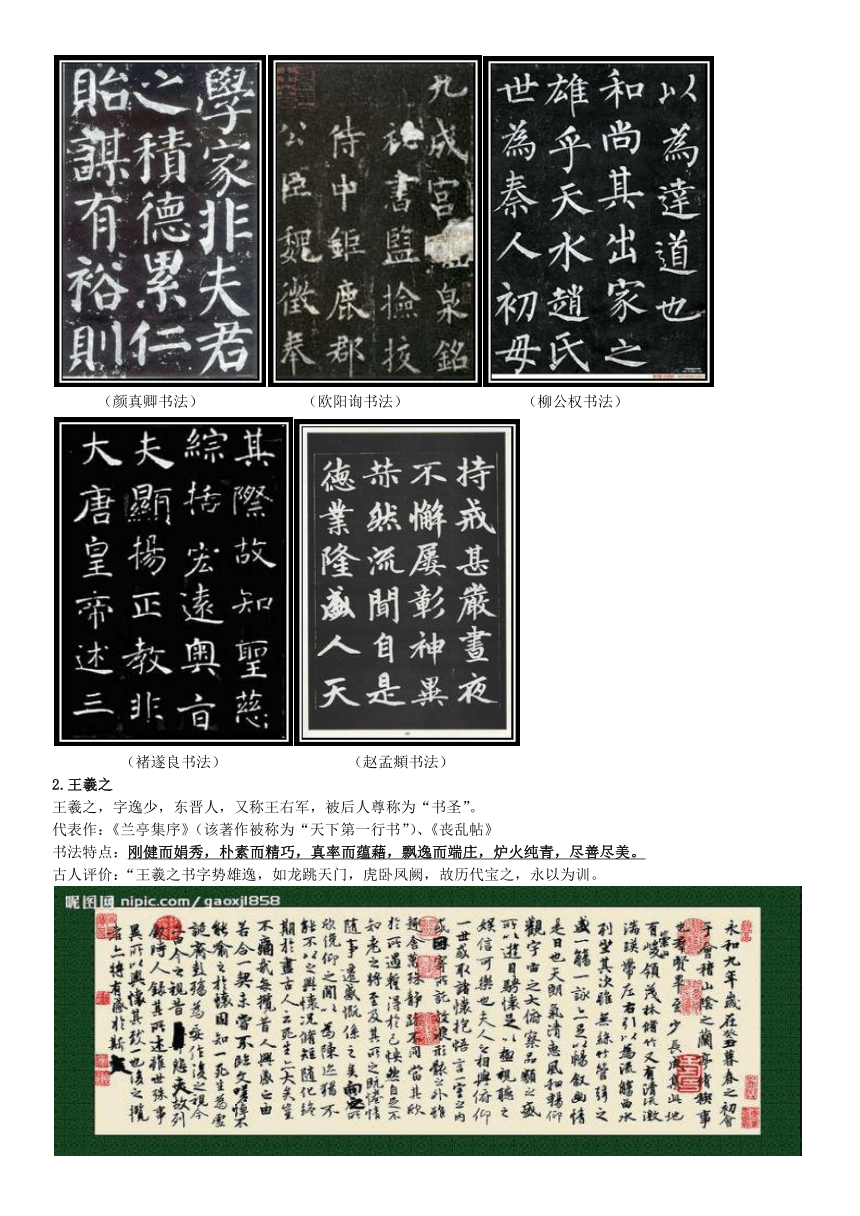 學家非夫君
之積德累仁
貽謀有裕則
九成宮
泉銘
秘書監撿挍
侍中鉅鹿郡
公臣魏徵奉
以為達道也
和尚其出家之
雄乎天水趙氏
世為秦人初毋
（颜真卿书法）
（欧阳询书法）
（柳公权书法）
其際故知聖慈
綜括宏遠奧旨
夫顯揚正教非
大唐皇帝述三
持戒甚嚴晝夜
不懈屢彰神異
恭然流聞自是
德業隆盛人天
（褚遂良书法）
（赵孟頫书法）
2.王羲之
王羲之，字逸少，东晋人，又称王右军，被后人尊称为“书圣”。
代表作:《兰亭集序》(该著作被称为“天下第一行书”)、《丧乱帖》
书法特点: 刚健而娟秀，朴素而精巧，真率而蕴藉，飘逸而端庄，炉火纯青，尽善尽美。
古人评价:“王羲之书字势雄逸，如龙跳天门，虎卧凤阙，故历代宝之，永以为训。
昵图网 nipic.com/gaoxjl858
永和九年歲在癸丑暮春之初會
于會稽山陰之蘭亭脩稧事
也群賢畢至少長咸集此地
有崇山峻領茂林脩竹又有清流激
湍暎帶左右引以為流觴曲水
列坐其次雖無絲竹管弦之
盛一觴一詠亦足以暢敘幽情
是日也天朗氣清惠風和暢仰
觀宇宙之大俯察品類之盛
所以遊目騁懷足以極視聽之
娛信可樂也夫人之相與俯仰
一世或取諸懷抱悟言一室之內
或因寄所託放浪形骸之外雖
趣舍萬殊靜躁不同當其欣
於所遇蹔得於己怏然自足不
知老之將至及其所之既惓情
隨事遷感慨係之矣向之所
欣俛仰之閒以為陳迹猶不
能不以之興懷況脩短隨化終
期於盡古人云死生亦大矣豈
不痛哉每攬昔人興感之由
若合一契未嘗不臨文嗟悼不
能喻之於懷固知一死生為虛
誕齊彭殤為妄作後之視今
亦由今之視昔悲夫故列
敘時人錄其所述雖世殊事
異所以興懷其致一也後之攬
者亦將有感於斯文